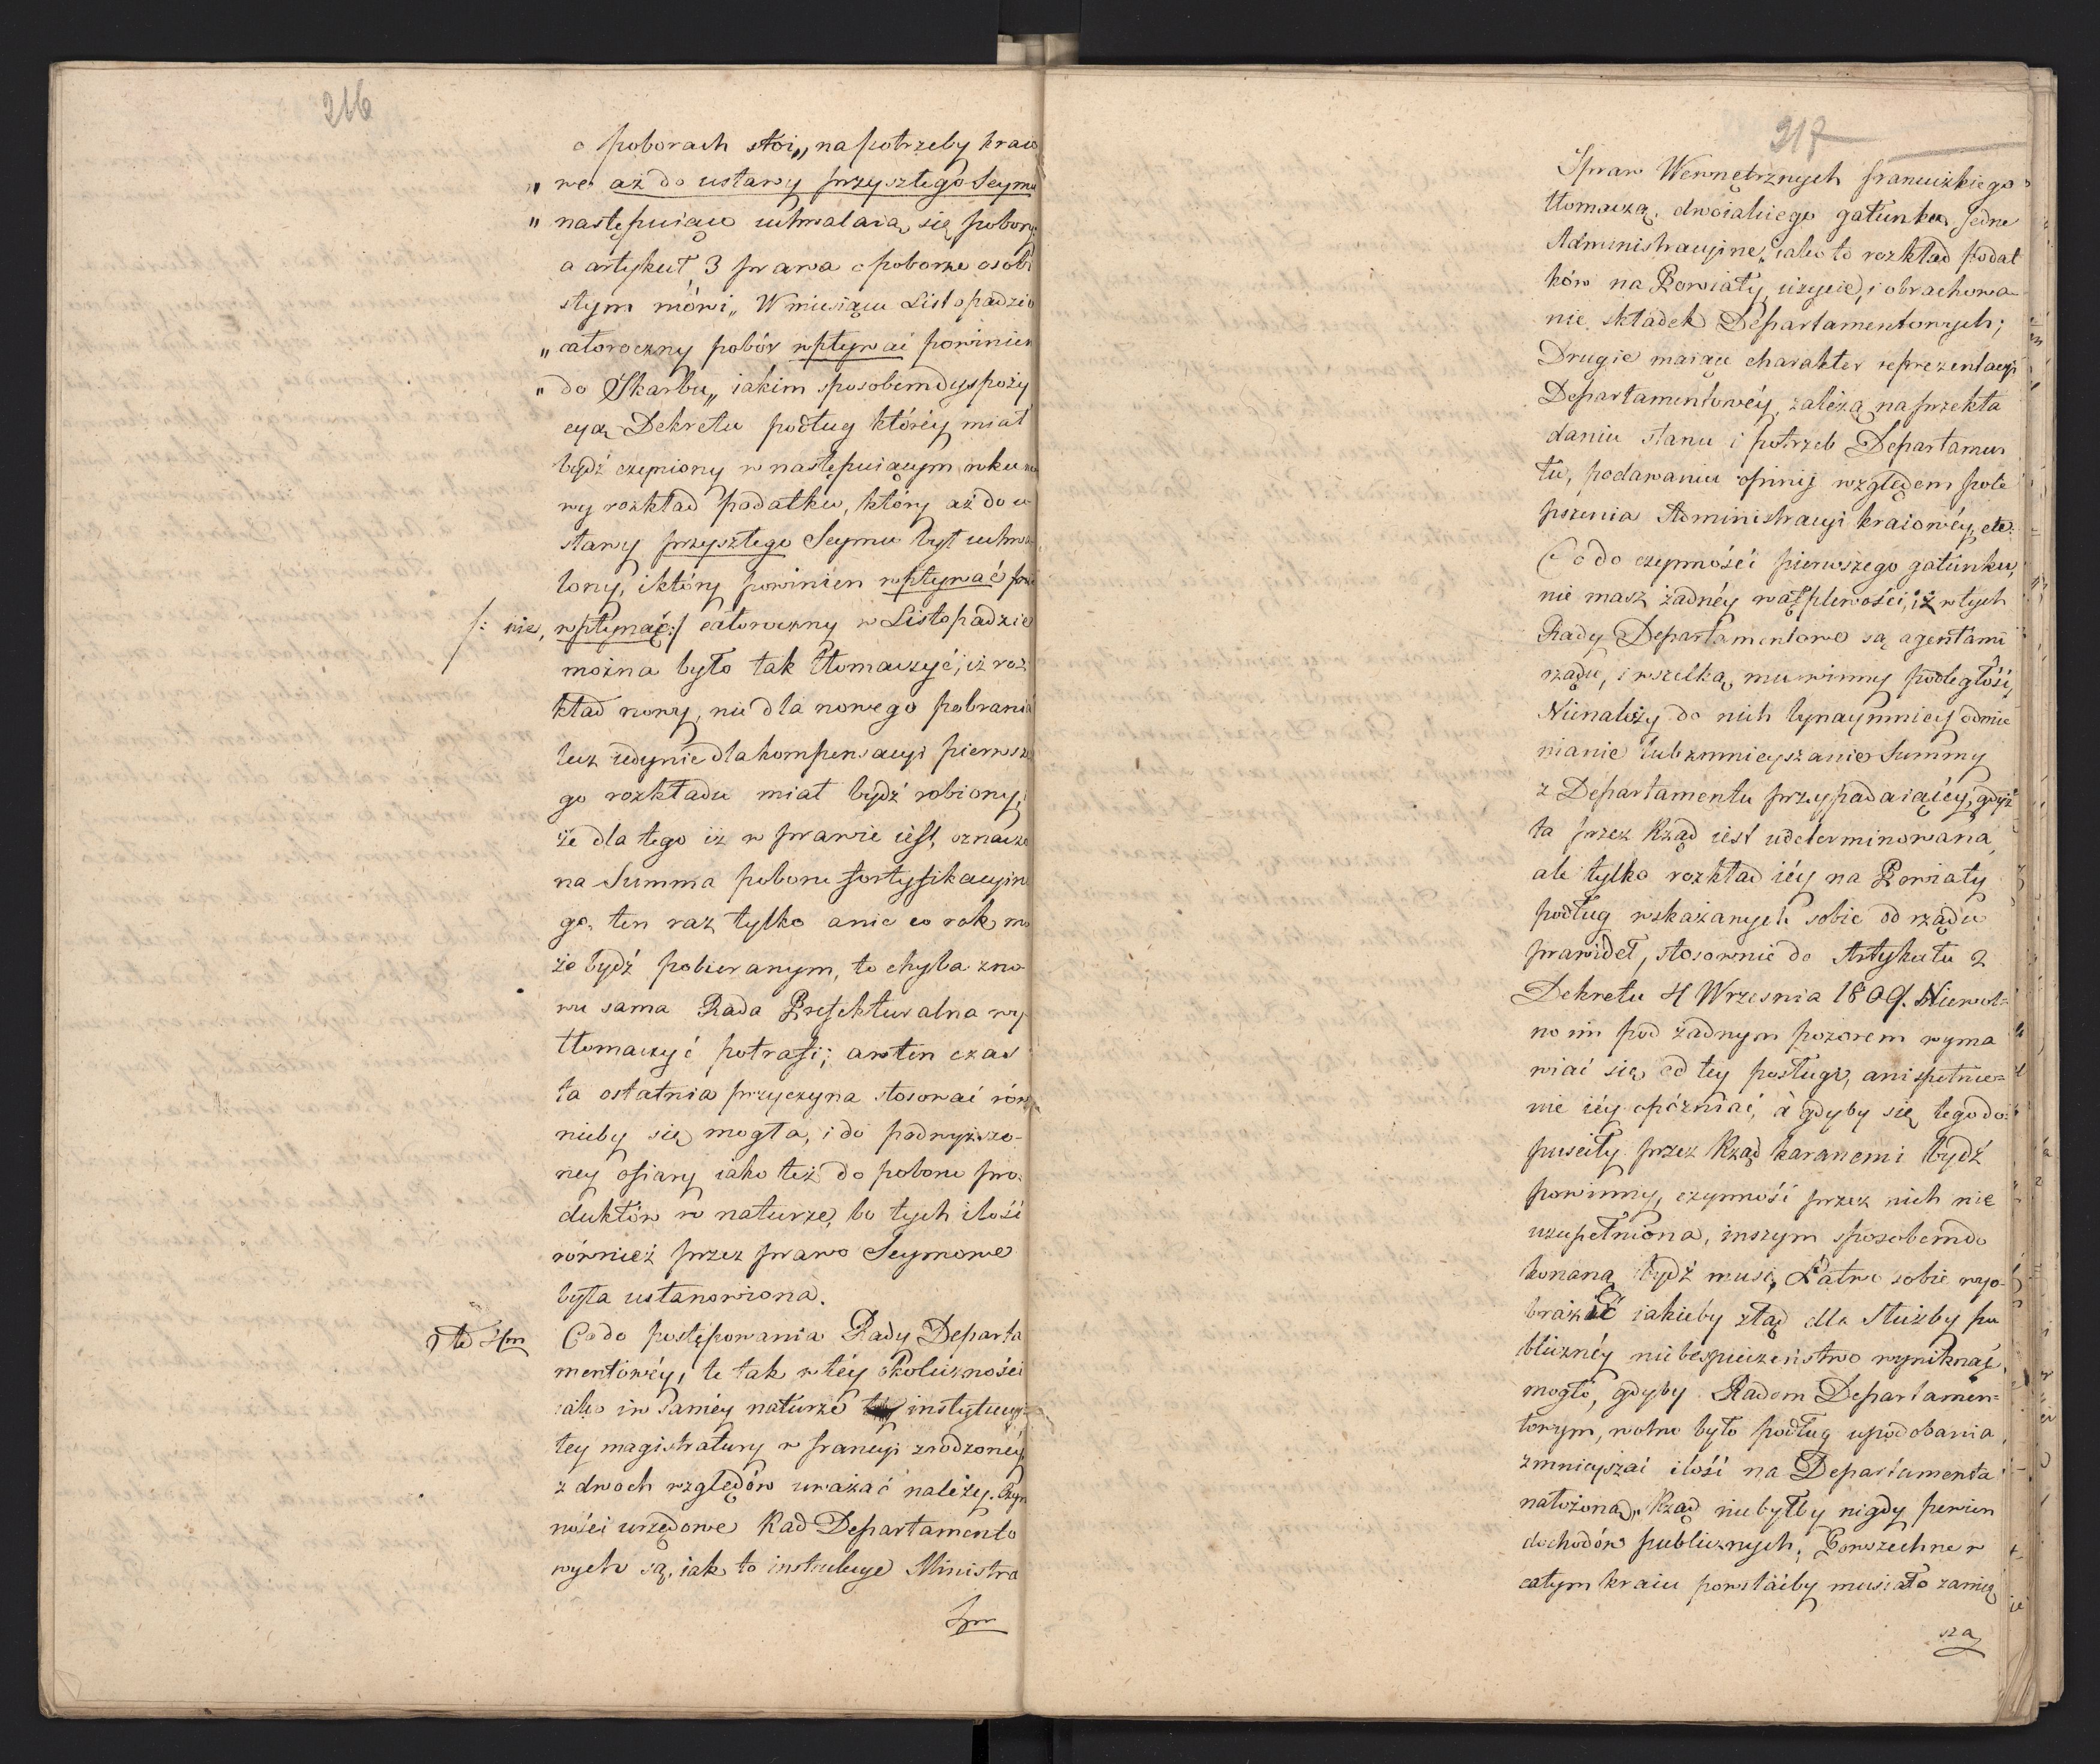 216
o poborach stoi „ na potrzeby kraio
„ we aż do ustawy przyszłego Seymu
„ następuiące uchwalaią się pobory:
a artykuł 3 prawa o poborze osobi
stym mówi „ W miesiącu Listopadzie
„ całoroczny pobór wpływać powinien
„ do Skarbu „ iakim sposobem dyspozy
cya Dekretu podług któréy miał
bydź czyniony w następuiącym roku no
wy rozkład podatku, który aż do u-
stawy przyszłego Seymu był uchwa-
lony, i który powinien wpływać /: nie
/: nie, wpłynąć :/ całoroczny w Listopadzie
można było tak tłomaczyć, iż roz-
kład nowy, nie dla nowego pobrania
lecz iedynie dla kompensacyi pierwsze
go rozkładu miał bydź robiony,
że dla tego iż w prawie iest, oznaczo
na Summa poboru fortyfikacyine
go, ten raz tylko a nie co rok mo
że bydź pobieranym, to chyba zno-
wu sama Rada Prefekturalna wy
tłomaczyć potrafi; a w ten czas
ta ostatnia przyczyna stosować rów
nieby się mogła, i do podwyższo-
ney ofiary iako też do poboru pro-
duktów w naturze, bo tych ilość
również przez prawo Seymowe
była ustanowiona.
Co do postępowania Rady Departa
mentowéy, te tak w téy okoliczności
iako i w saméy naturze instytucyi
tey magistratury w francyi zrodzonéy,
z dwoch względów uważać należy. Czyn
ności urzędowe Rad Departamento
wych są, iak to instrukcye Ministra
Spr
217
Spraw Wewnętrznych francuzkiego
tłomaczą, dwoiakiego gatunku. Jedne
Administracyine, iako to rozkład podat
ków na Powiaty, użycie, i obrachowa-
nie składek Departamentowych;
Drugie maiące charakter reprezentacyi
Departamentowéy, zależą na przekła
daniu stanu i potrzeb Departamen
tu, podawaniu opinij względem pole
pszenia Administracyi kraiowéy etc.
Co do czynności pierwszego gatunku,
nie masz żadnéy wątpliwości, iż w tych
Rady Departamentowe są agentami
rządu, i wszelką mu winny podległość,
Nienależy do nich bynaymniéy odmie
nianie lub zmnieyszanie Summy
z Departamentu przypadaiącéy, gdyż
ta przez Rząd iest udeterminowana,
ale tylko rozkład iéy na Powiaty
podług wskazanych sobie od rządu
prawideł, stosownie do Artykułu 2
Dekretu 4 Wrzesnia 1809. Niewol=
no im pod żadnym pozorem wyma
wiać się od tey posługi, ani spełnie=
nie iéy opóźniać, a gdyby się tego do-
puściły przez Rząd karanemi bydź
powinny, czynność przez nich nie
uzupełniona, inszym sposobem do
konaną bydź musi, Łatwo sobie wyo-
brazić iakieby ztąd dla Służby pu
bliczney niebespieczeństwo wyniknąć
mogło, gdyby Radom Departamen=
towym, wolno było podług upodobania
zmnieyszać ilość na Departamenta
nałożoną, Rząd niebyłby nigdy pewien
dochodów publicznych, Powszechne w
całym kraiu powstaćby musiało zamię
sza